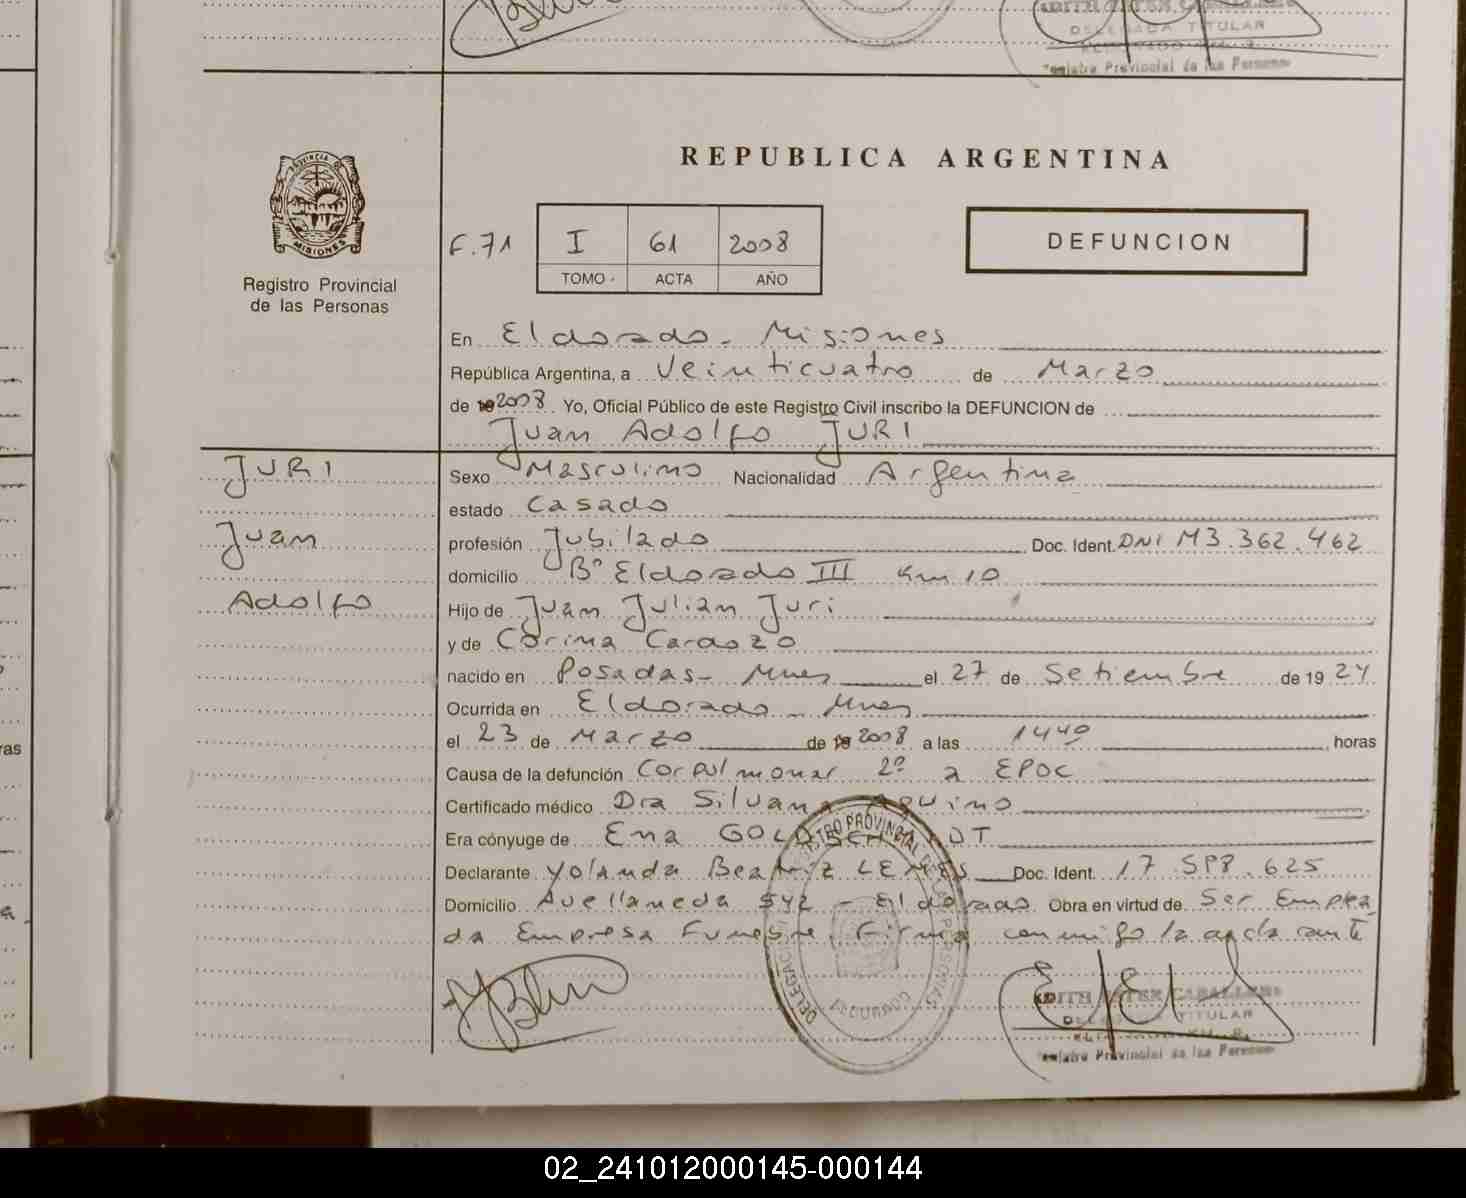 DELEGADA TITULAR
Registro Provincial de las Personas
REPUBLICA ARGENTINA
PROVINCIA DE
MISIONES
Registro Provincial
de las Personas
F. 71 I 61 2008
TOMO ACTA AÑO
DEFUNCION
En Eldorado - Misiones
República Argentina, a Veinticuatro de Marzo
de 2008 Yo, Oficial Público de este Registro Civil inscribo la DEFUNCION de
Juan Adolfo JURI
JURI
Juan
Adolfo
Sexo Masculino Nacionalidad Argentina
estado Casado
profesión Jubilado Doc. Ident. DNI M3.362.462
domicilio Bº Eldorado III Km 10
Hijo de Juan Julian Juri
y de Corina Cardozo
nacido en Posadas - Mnes el 27 de Setiembre de 1924
Ocurrida en Eldorado - Mnes
el 23 de Marzo de 2008 a las 1440 horas
Causa de la defunción Cor pulmonar 2º a EPOC
Certificado médico Dra Silvana Aquino
Era cónyuge de Ena
Declarante Yolanda Beatriz LEMES Doc. Ident. 17.598.625
Domicilio Avellaneda 542 - Eldorado Obra en virtud de Ser Emplea
da Empresa Funebre. Firma conmigo la declarante
REGISTRO PROVINCIAL DE LAS PERSONAS
DELEGACION
ELDORADO
EDITH ESTER CABALLERO
DELEGADA TITULAR
Registro Provincial de las Personas
02_241012000145-000144